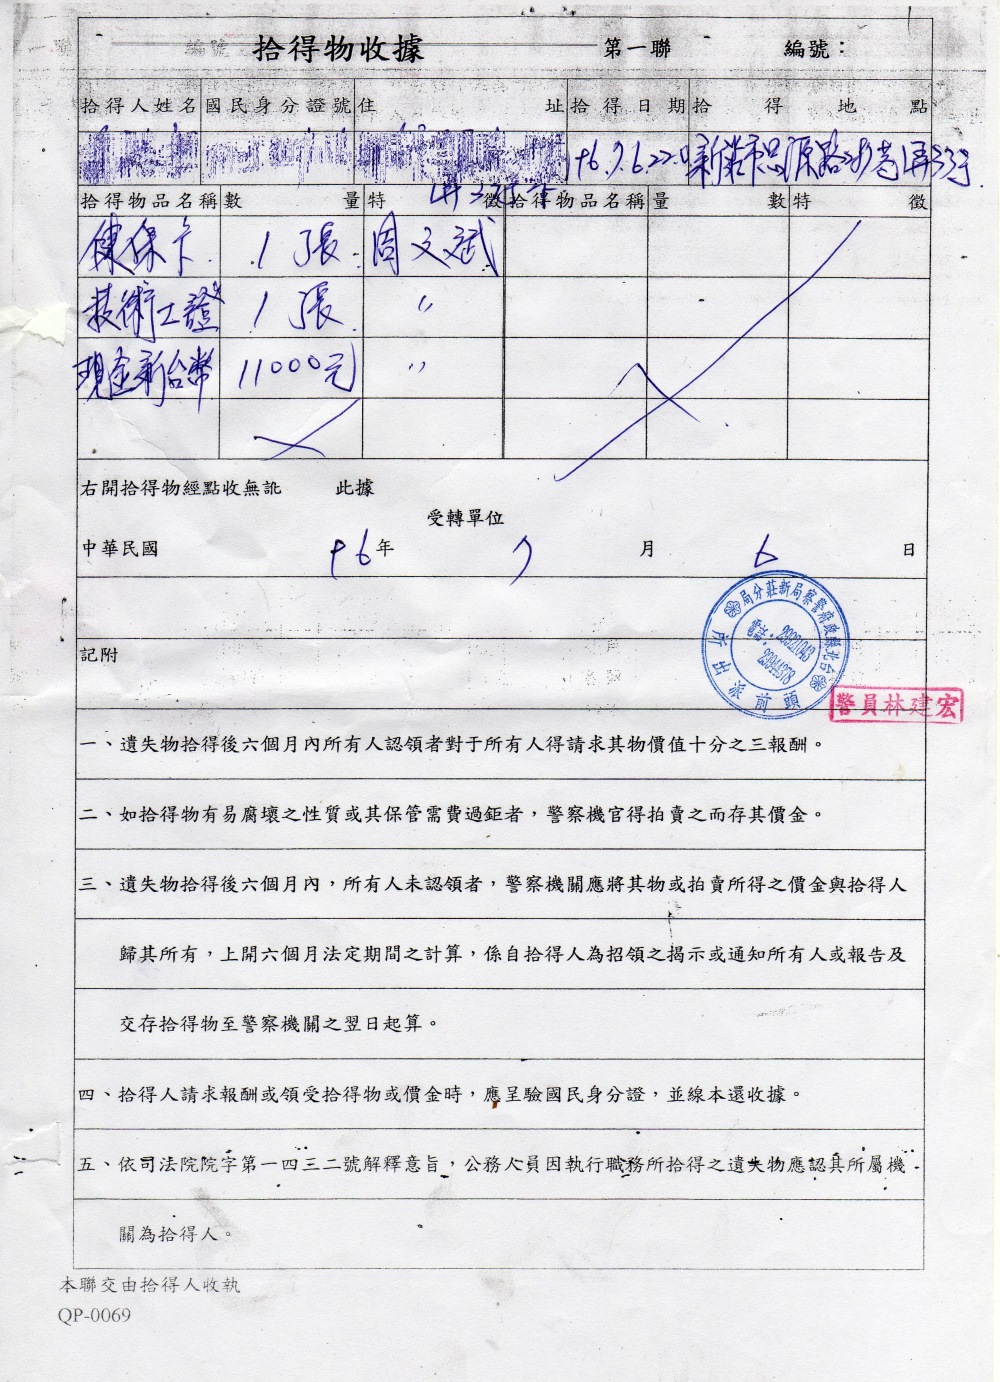 拾得物收據 第一聯 編號：
拾得人姓名 國民身分證號 住址 拾得日期 拾得地點
96.7.6.22:0 新莊市思源路
拾得物品名稱 數量 特徵 拾得物品名稱 量數 特徵
健保卡 1張 周文斌
技術士證 1張 〃
現金新台幣 11000元 〃
右開拾得物經點收無訛 此據
受轉單位
中華民國 96年 7月 6日
台北縣政府警察局新莊分局
頭前派出所
電話：
警員林建宏
記附
一、遺失物拾得後六個月內所有人認領者對于所有人得請求其物價值十分之三報酬。
二、如拾得物有易腐壞之性質或其保管需費過鉅者，警察機官得拍賣之而存其價金。
三、遺失物拾得後六個月內，所有人未認領者，警察機關應將其物或拍賣所得之價金與拾得人
歸其所有，上開六個月法定期間之計算，係自拾得人為招領之揭示或通知所有人或報告及
交存拾得物至警察機關之翌日起算。
四、拾得人請求報酬或領受拾得物或價金時，應呈驗國民身分證，並線本還收據。
五、依司法院院字第一四三二號解釋意旨，公務人員因執行職務所拾得之遺失物應認其所屬機
關為拾得人。
本聯交由拾得人收執
QP-0069